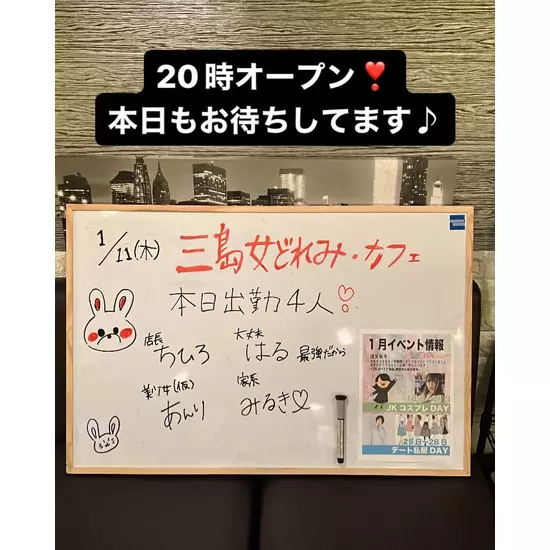 20時オープン❣
本日もお待ちしてます♪
1/11(木)
三島女どれみ・カフェ
本日出勤4人
店長
ちひろ
大丈夫
はる 最強だから
美少女(仮)
あんり
家系
みるき♡
1月イベント情報
JKコスプレDAY
25日・28日
デート私服DAY